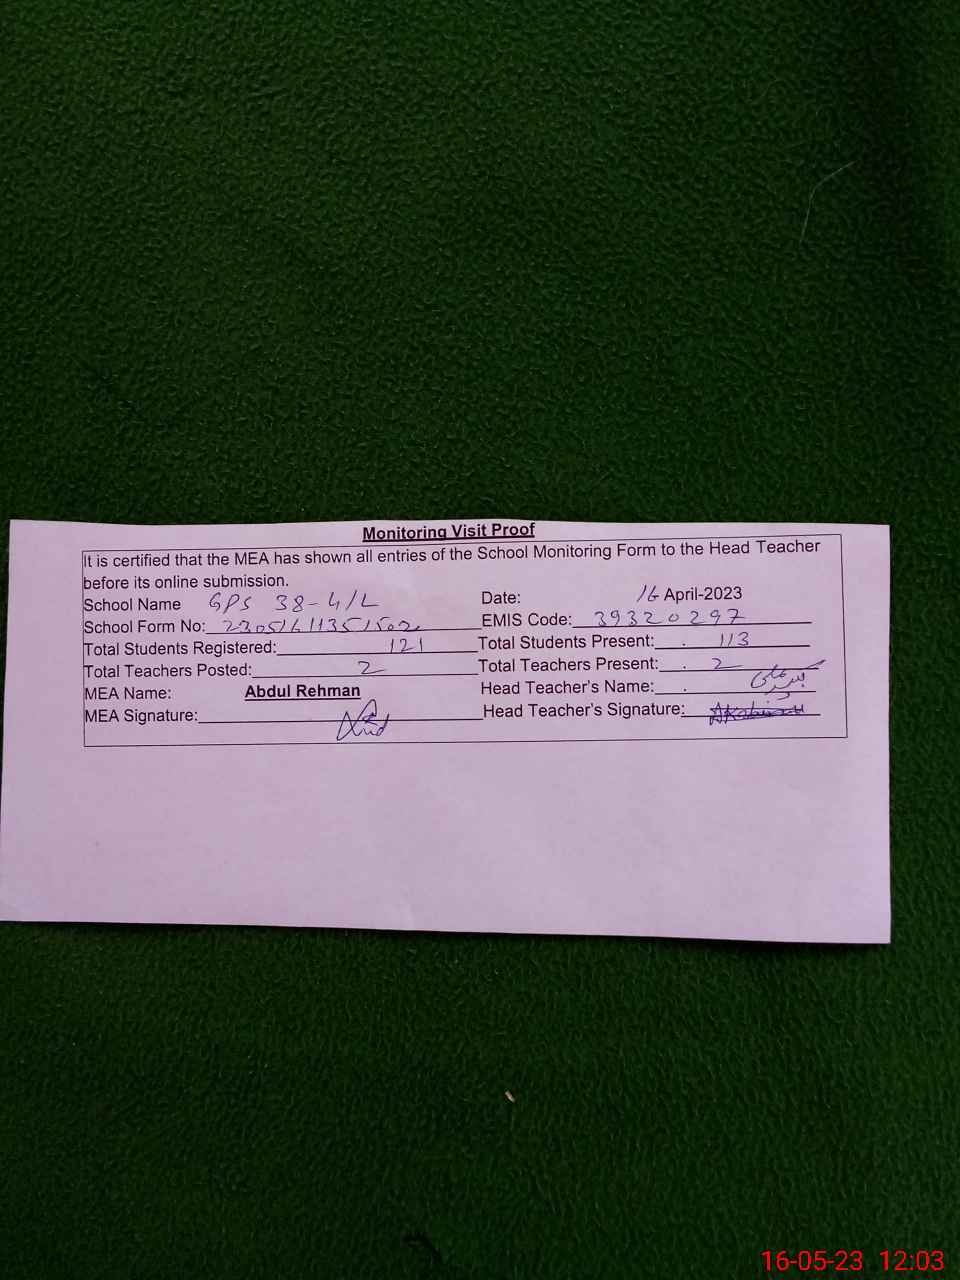 Monitoring Visit Proof
It is certified that the MEA has shown all entries of the School Monitoring Form to the Head Teacher
before its online submission.
School Name GPS 38-4/L Date: 16 April-2023
School Form No: 23051611351502 EMIS Code: 39320297
Total Students Registered: 121 Total Students Present: 113
Total Teachers Posted: 2 Total Teachers Present: 2
MEA Name: Abdul Rehman Head Teacher's Name:
MEA Signature: Head Teacher's Signature:
16-05-23 12:03